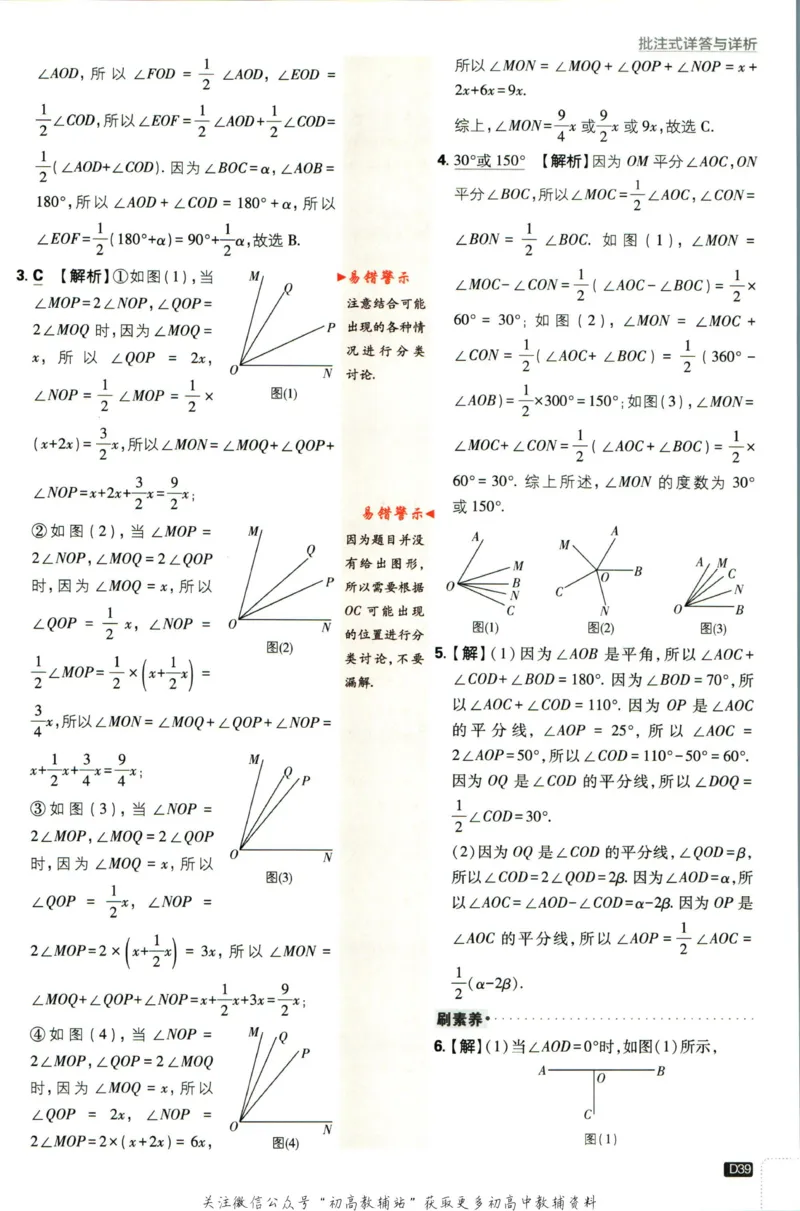 批注式详答与详析
∠AOD,所以∠FOD = 1/2 ∠AOD, ∠EOD =
1/2∠COD,所以∠EOF = 1/2∠AOD+1/2∠COD=
1/2(∠AOD+∠COD). 因为∠BOC=α, ∠AOB=
180°,所以∠AOD+∠COD = 180°+α,所以
∠EOF=1/2(180°+α)=90°+1/2α,故选 B.
3. C 【解析】①如图(1),当
∠MOP=2∠NOP,∠QOP=
2∠MOQ 时,因为∠MOQ=
x, 所以 ∠QOP = 2x,
∠NOP = 1/2 ∠MOP = 1/2 ×
(x+2x)=3/2x,所以∠MON=∠MOQ+∠QOP+
∠NOP=x+2x+3/2x=9/2x;
M
Q
P
O
N
图(1)
②如图(2),当∠MOP =
2∠NOP,∠MOQ=2∠QOP
时,因为∠MOQ = x,所以
∠QOP = 1/2 x, ∠NOP =
1/2∠MOP=1/2×(x+1/2x) =
3/4x,所以∠MON=∠MOQ+∠QOP+∠NOP=
x+1/2x+3/4x=9/4x;
M
Q
P
O
N
图(2)
③如图(3),当∠NOP =
2∠MOP,∠MOQ=2∠QOP
时,因为∠MOQ = x,所以
∠QOP = 1/2x, ∠NOP =
2∠MOP=2×(x+1/2x) = 3x,所以∠MON =
∠MOQ+∠QOP+∠NOP=x+1/2x+3x=9/2x;
M
Q
P
O
N
图(3)
④如图(4),当∠NOP =
2∠MOP,∠QOP=2∠MOQ
时,因为∠MOQ = x,所以
∠QOP = 2x, ∠NOP =
2∠MOP=2×(x+2x) = 6x,
M
Q
P
O
N
图(4)
▶易错警示
注意结合可能
出现的各种情
况进行分类
讨论.
易错警示◀
因为题目并没
有给出图形,
所以需要根据
OC 可能出现
的位置进行分
类讨论,不要
漏解.
所以∠MON=∠MOQ+∠QOP+∠NOP=x+
2x+6x=9x.
综上,∠MON=9/4x或9/2x或9x,故选 C.
4. 30°或150° 【解析】因为 OM 平分∠AOC,ON
平分∠BOC,所以∠MOC=1/2∠AOC,∠CON=
∠BON = 1/2 ∠BOC. 如图(1),∠MON =
∠MOC-∠CON=1/2(∠AOC-∠BOC)=1/2×
60° = 30°;如图(2),∠MON = ∠MOC +
∠CON = 1/2(∠AOC+∠BOC) = 1/2(360°-
∠AOB)=1/2×300°=150°;如图(3),∠MON=
∠MOC+∠CON=1/2(∠AOC+∠BOC)=1/2×
60°=30°. 综上所述,∠MON 的度数为 30°
或150°.
A
M
B
N
C
O
图(1)
A
M
O
B
C
N
图(2)
A
M
C
N
O
B
图(3)
5.【解】(1)因为∠AOB 是平角,所以∠AOC+
∠COD+∠BOD=180°. 因为∠BOD=70°,所
以∠AOC+∠COD=110°. 因为 OP 是∠AOC
的平分线,∠AOP = 25°,所以∠AOC =
2∠AOP=50°,所以∠COD=110°-50°=60°.
因为 OQ 是∠COD 的平分线,所以∠DOQ=
1/2∠COD=30°.
(2)因为 OQ 是∠COD 的平分线,∠QOD=β,
所以∠COD=2∠QOD=2β.因为∠AOD=α,所
以∠AOC=∠AOD-∠COD=α-2β.因为 OP 是
∠AOC 的平分线,所以∠AOP = 1/2 ∠AOC =
1/2(α-2β).
刷素养
6.【解】(1)当∠AOD=0°时,如图(1)所示,
A
O
B
C
图(1)
D39
关注微信公众号“初高教辅站”获取更多初高中教辅资料